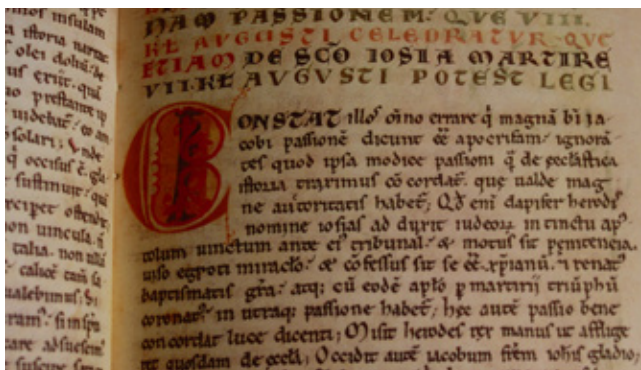 nos insulam
istoria narrat
olei dolia
erit qui
p̄stante ip
uidebat eo am
solari; Vnde
q̇ occisus ē. gla
sustinuit qui
ercipet ostend
non uincula. ñ
talia. non ulli
calicē tam sa
ualebimus; Si
ram; si in ipsu
tare adsuescim
suscipe
NAM PASSIONEM. QVE VIII.
KL AVGVSTI CELEBRATVR QVE
ETIAM DE SCŌ IOSIA MARTIRE
VII. KL AVGVSTI POTEST LEGI
CONSTAT illos oīno errare q̇ magnā bī ia
cobi passionē dicunt eē apocrifam. ignorā
tes quod ipsa modice passioni q̄ de ecclastica
istoria traximus cōcordat. que ualde mag
ne autoritatis habet; Qđ eni dapifer herodis
nomine iosias adduxit iudeoꝝ instinctu ap̄s
tolum uinctum ante ei tribunal. & motus sit penitencia.
uiso egroti miraclo. & cōfessus sit se eē xp̄ianū. ⁊ renatꝰ
baptismatis gr̄a. atq; cū eodē ap̄lo p martirij triūphū
coronatꝰ in utraq; passione habet; hec autē passio bene
concordat luce dicenti; Misit herodes rex manus ut afflige
ret quosdam de eccla; Occidit autē iacobum frēm iohis gladio;